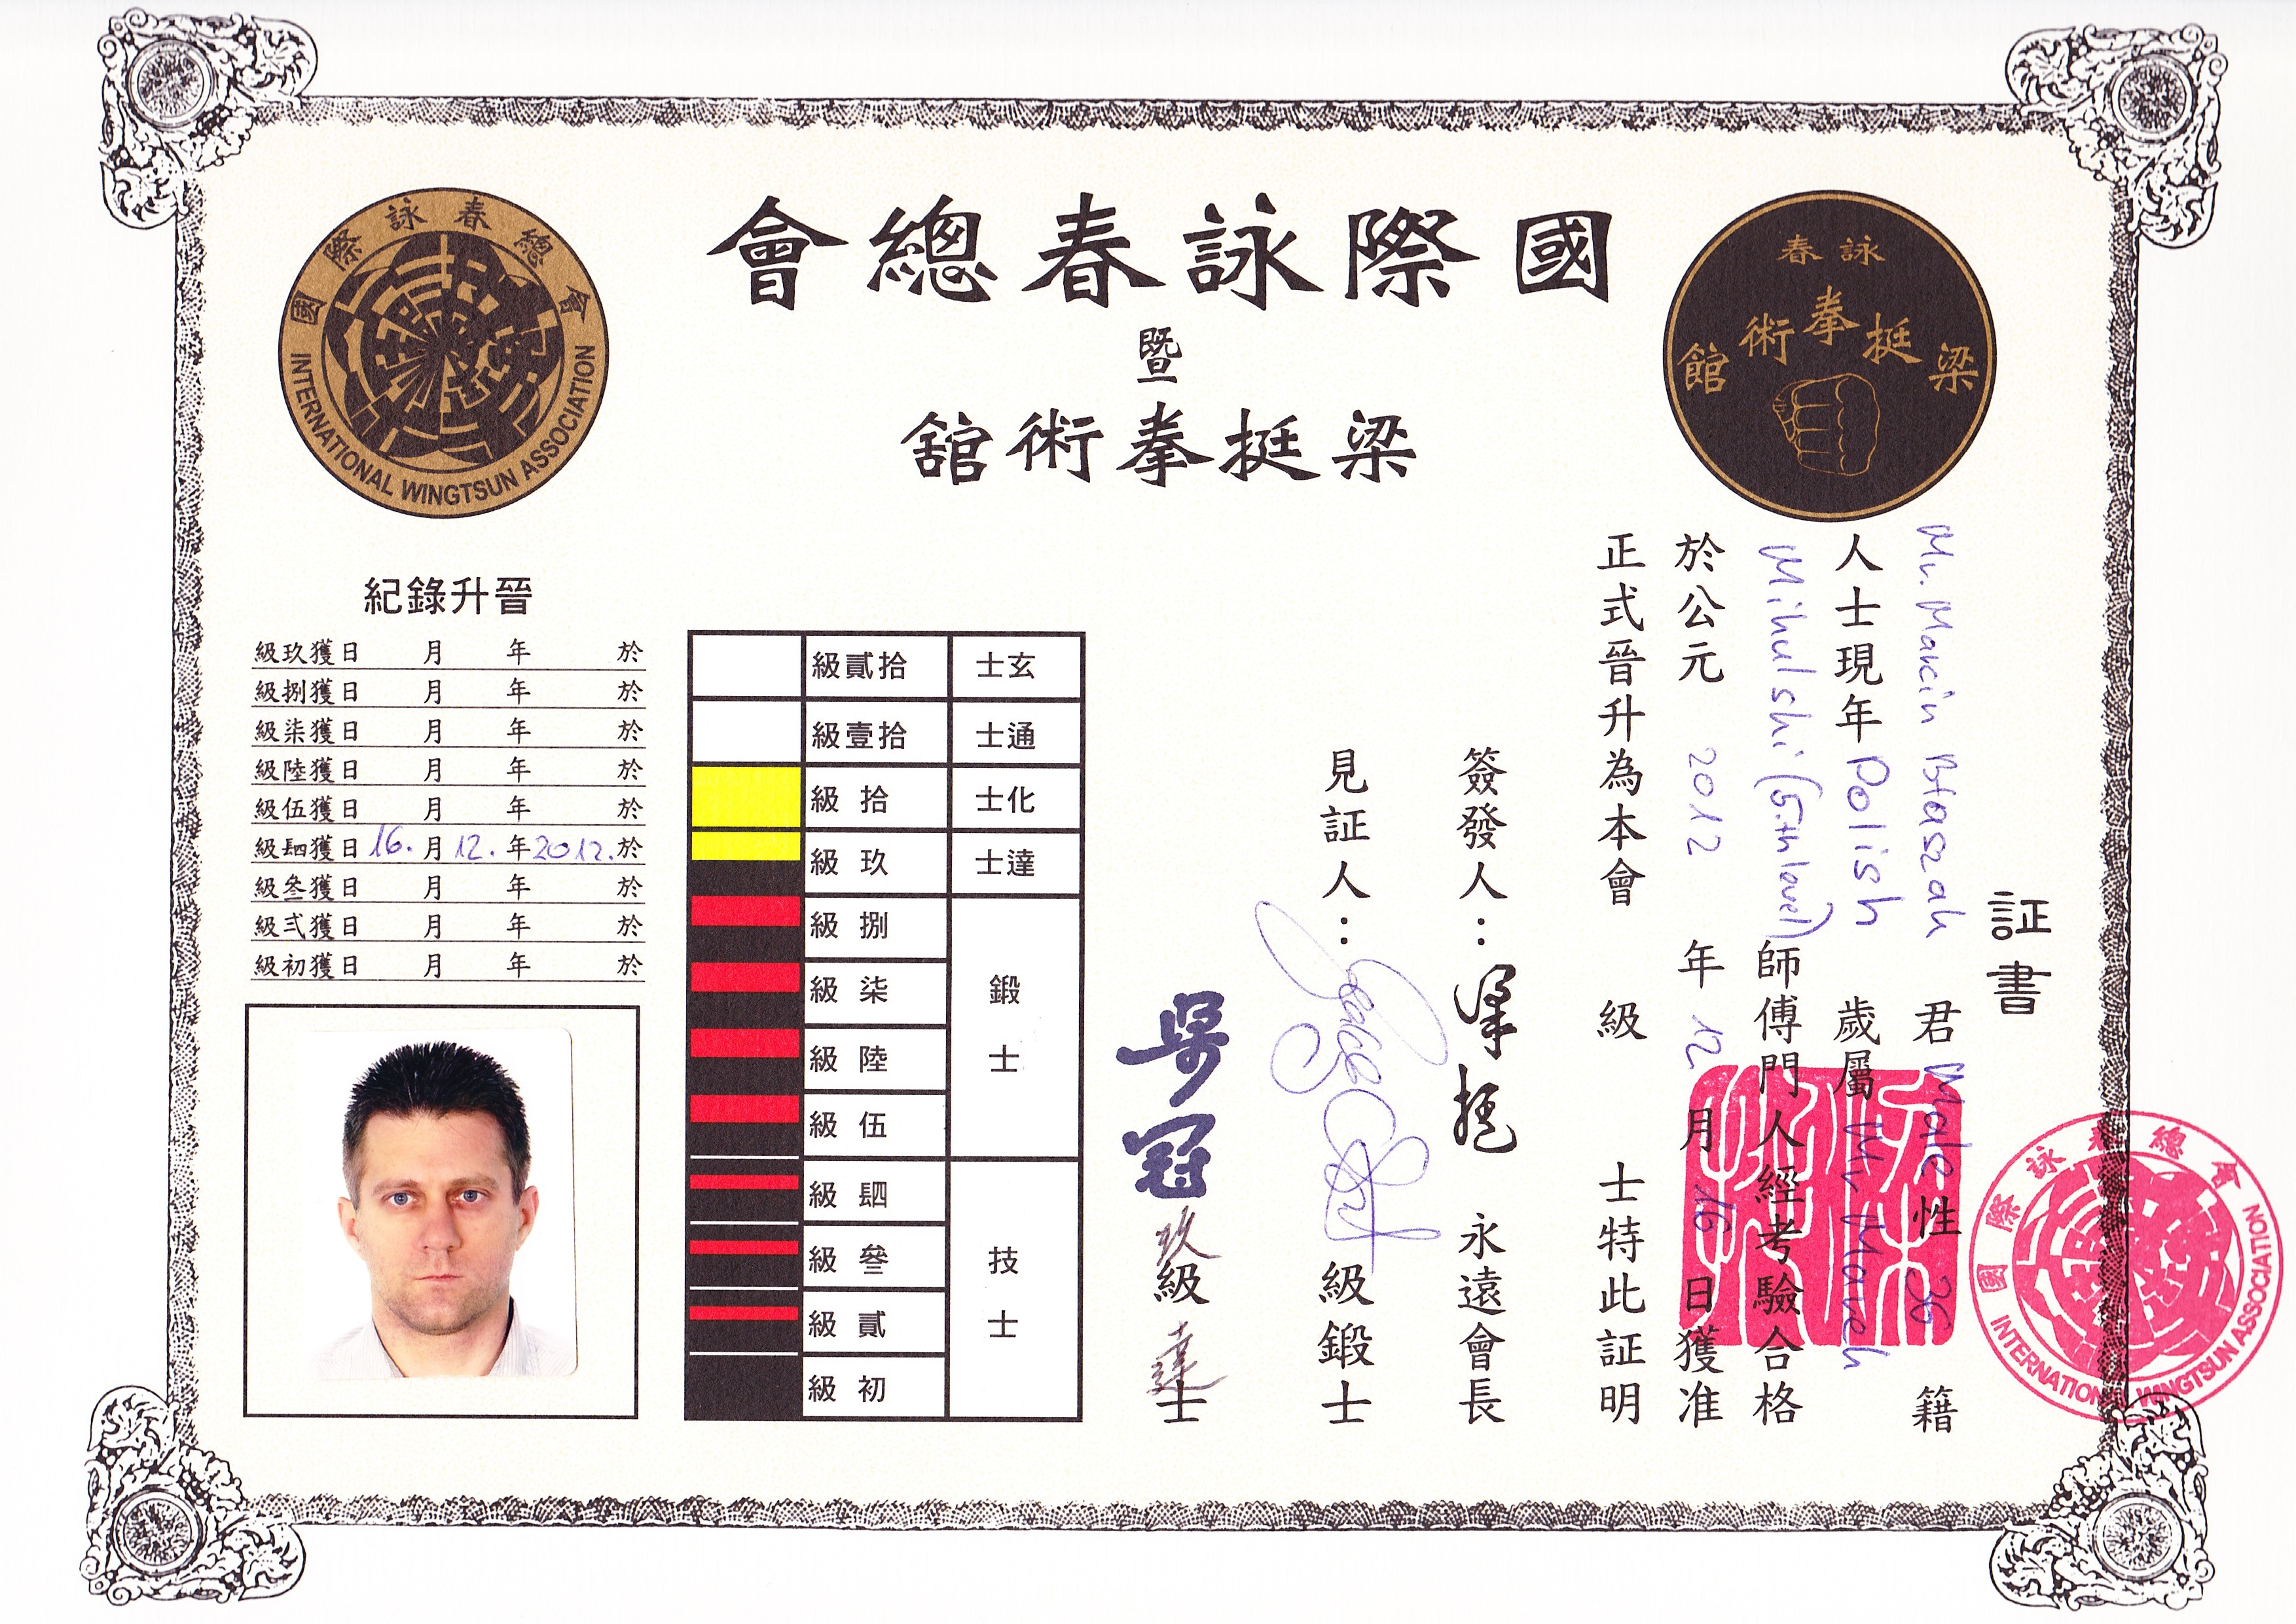 國際詠春總會
暨
梁挺拳術館
國際詠春總會
INTERNATIONAL WINGTSUN ASSOCIATION
詠春
梁挺拳術館
証書
Mr. Marcin Błaszak 君 Male 性 36 籍
人士現年 Polish 歲屬 Mr. Marek
Mihulshi (5.th level) 師傅門人經考驗合格
於公元 2012 年 12 月 16 日獲准
正式晉升為本會 級 士特此証明
簽發人：梁挺 永遠會長
見証人： 級鍛士
吳冠 玖級達士
玄士 拾貳級
通士 拾壹級
化士 拾級
達士 玖級
鍛士 捌級
柒級
陸級
伍級
技士 肆級
叄級
貳級
初級
晉升錄紀
於 年 月 日獲玖級
於 年 月 日獲捌級
於 年 月 日獲柒級
於 年 月 日獲陸級
於 年 月 日獲伍級
於 2012. 年 12. 月 16. 日獲肆級
於 年 月 日獲叄級
於 年 月 日獲弍級
於 年 月 日獲初級
國際詠春總會
INTERNATIONAL WINGTSUN ASSOCIATION